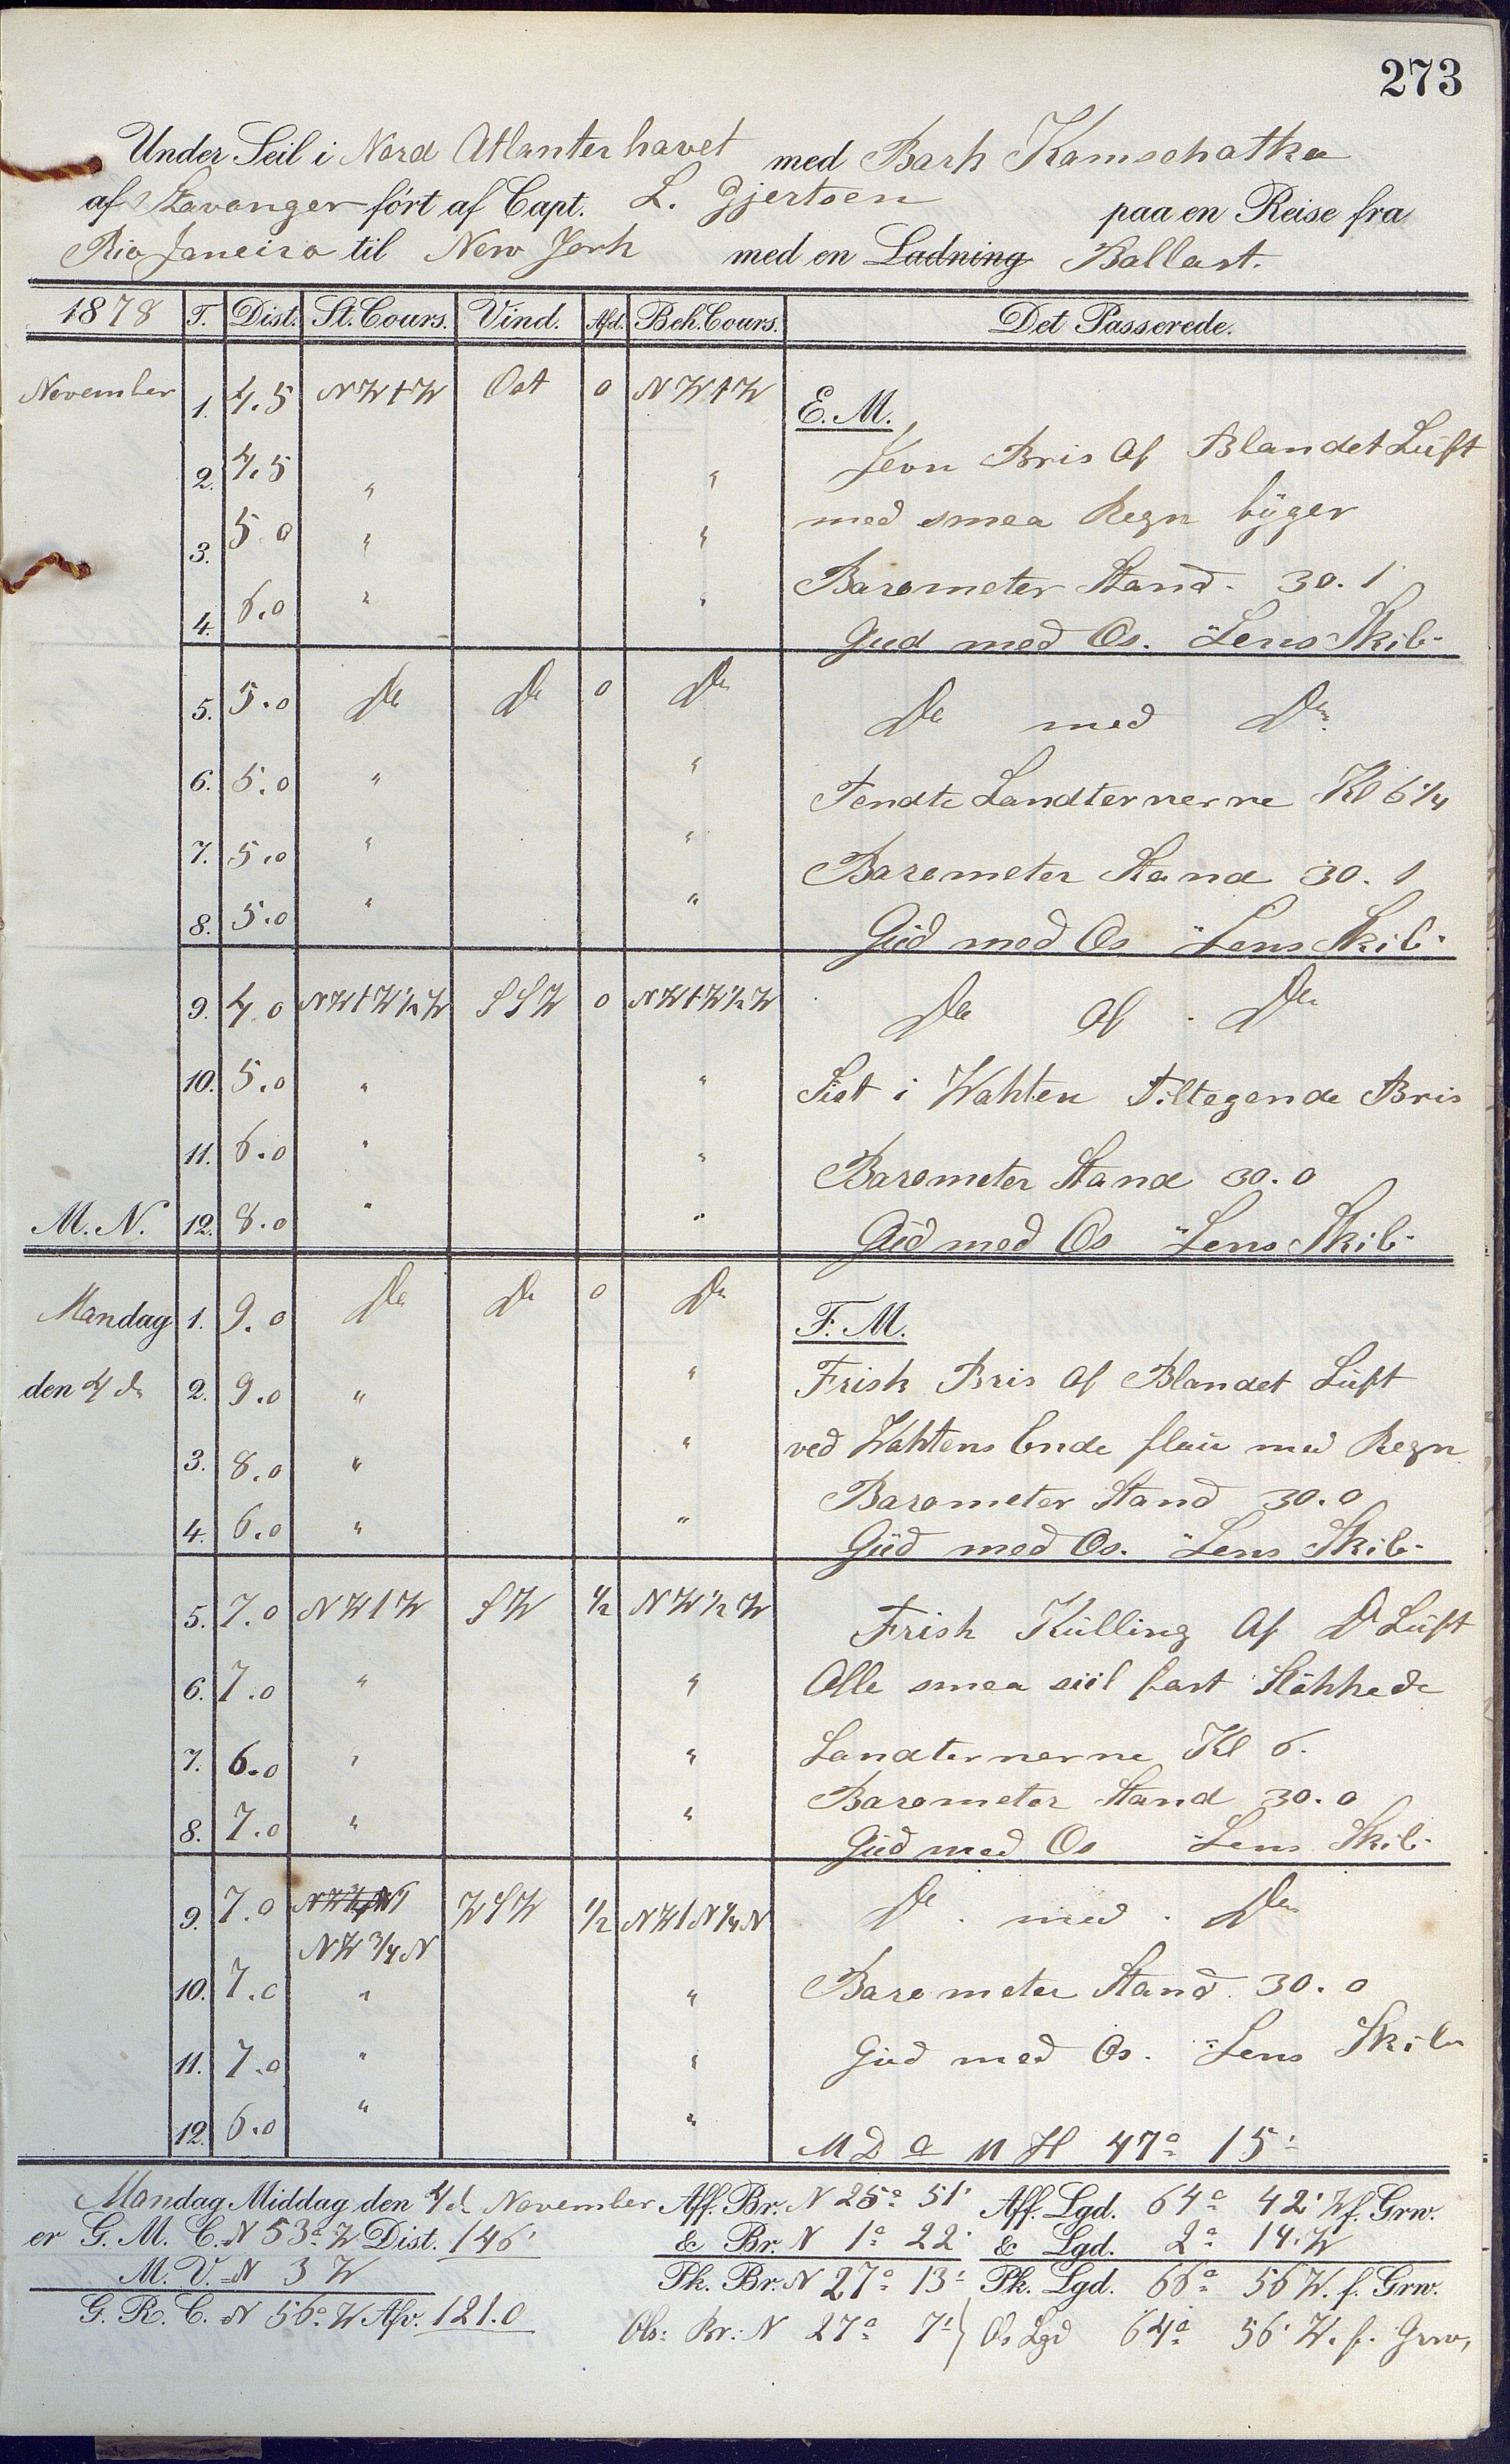 273
Under Seil i Nord Atlanterhavet med Bark Kamschatka
af Stavanger ført af Capt. L. Gjertsen paa en Reise fra
Rio Janeiro til New York med en Ladning Ballast.
1878 T. Dist. St. Cours. Vind. Afd. Beh. Cours. Det Passerede.
November 1. 4.5 NWtW Ost 0 NWtW E. M.
2. 4.5 " " Jevn Bris Af Blandet Lüft
3. 5.0 " " med smaa Regn byger
4. 6.0 " " Barometer Stand. 30.1
Gud med Os. Lens Skib
5. 5.0 Do Do 0 Do Do med Do
6. 5.0 " " Tendte Landternerne Kl 6 1/4
7. 5.0 " " Barometer Stand 30.1
8. 5.0 " " Gud med Os Lens Skib
9. 4.0 NWtW½W SSW 0 NWtW½W Do Af Do
10. 5.0 " " Sist i Wahten Tiltagende Bris
11. 6.0 " " Barometer Stand 30.0
M. N. 12. 8.0 " " Gud med Os Lens Skib
Mandag 1. 9.0 Do Do 0 Do F. M.
den 4 d. 2. 9.0 " " Frisk Bris Af Blandet Lüft
3. 8.0 " " ved Wahtens Ende flau med Regn
4. 6.0 " " Barometer Stand 30.0
Gud med Os. Lens Skib
5. 7.0 NWtW SW ½ NW½W Frisk Külling Af Do Lüft
6. 7.0 " " Alle smaa siil fast Slökkede
7. 6.0 " " Landternerne Kl 6.
8. 7.0 " " Barometer Stand 30.0
Gud med Os Lens Skib
9. 7.0 NW¾N WSW ½ NWtN¼N Do med Do
10. 7.0 " " Barometer Stand 30.0
11. 7.0 " " Gud med Os. Lens Skib
12. 6.0 " " M D H 47° 15'
Mandag Middag den 4 d. November Aff. Br. N 25° 51' Aff. Lgd. 64° 42' W f. Grw.
er G. M. C. N 53° W Dist. 146' & Br. N 1° 22' & Lgd. 2° 14' W
M. V. N 3 W Pk. Br. N 27° 13' Pk. Lgd. 66° 56 W. f. Grw.
G. R. C. N 56° W Afv. 121.0 Obs: Br: N 27° 7' Os Lgd 64° 56' W. f. Grw,